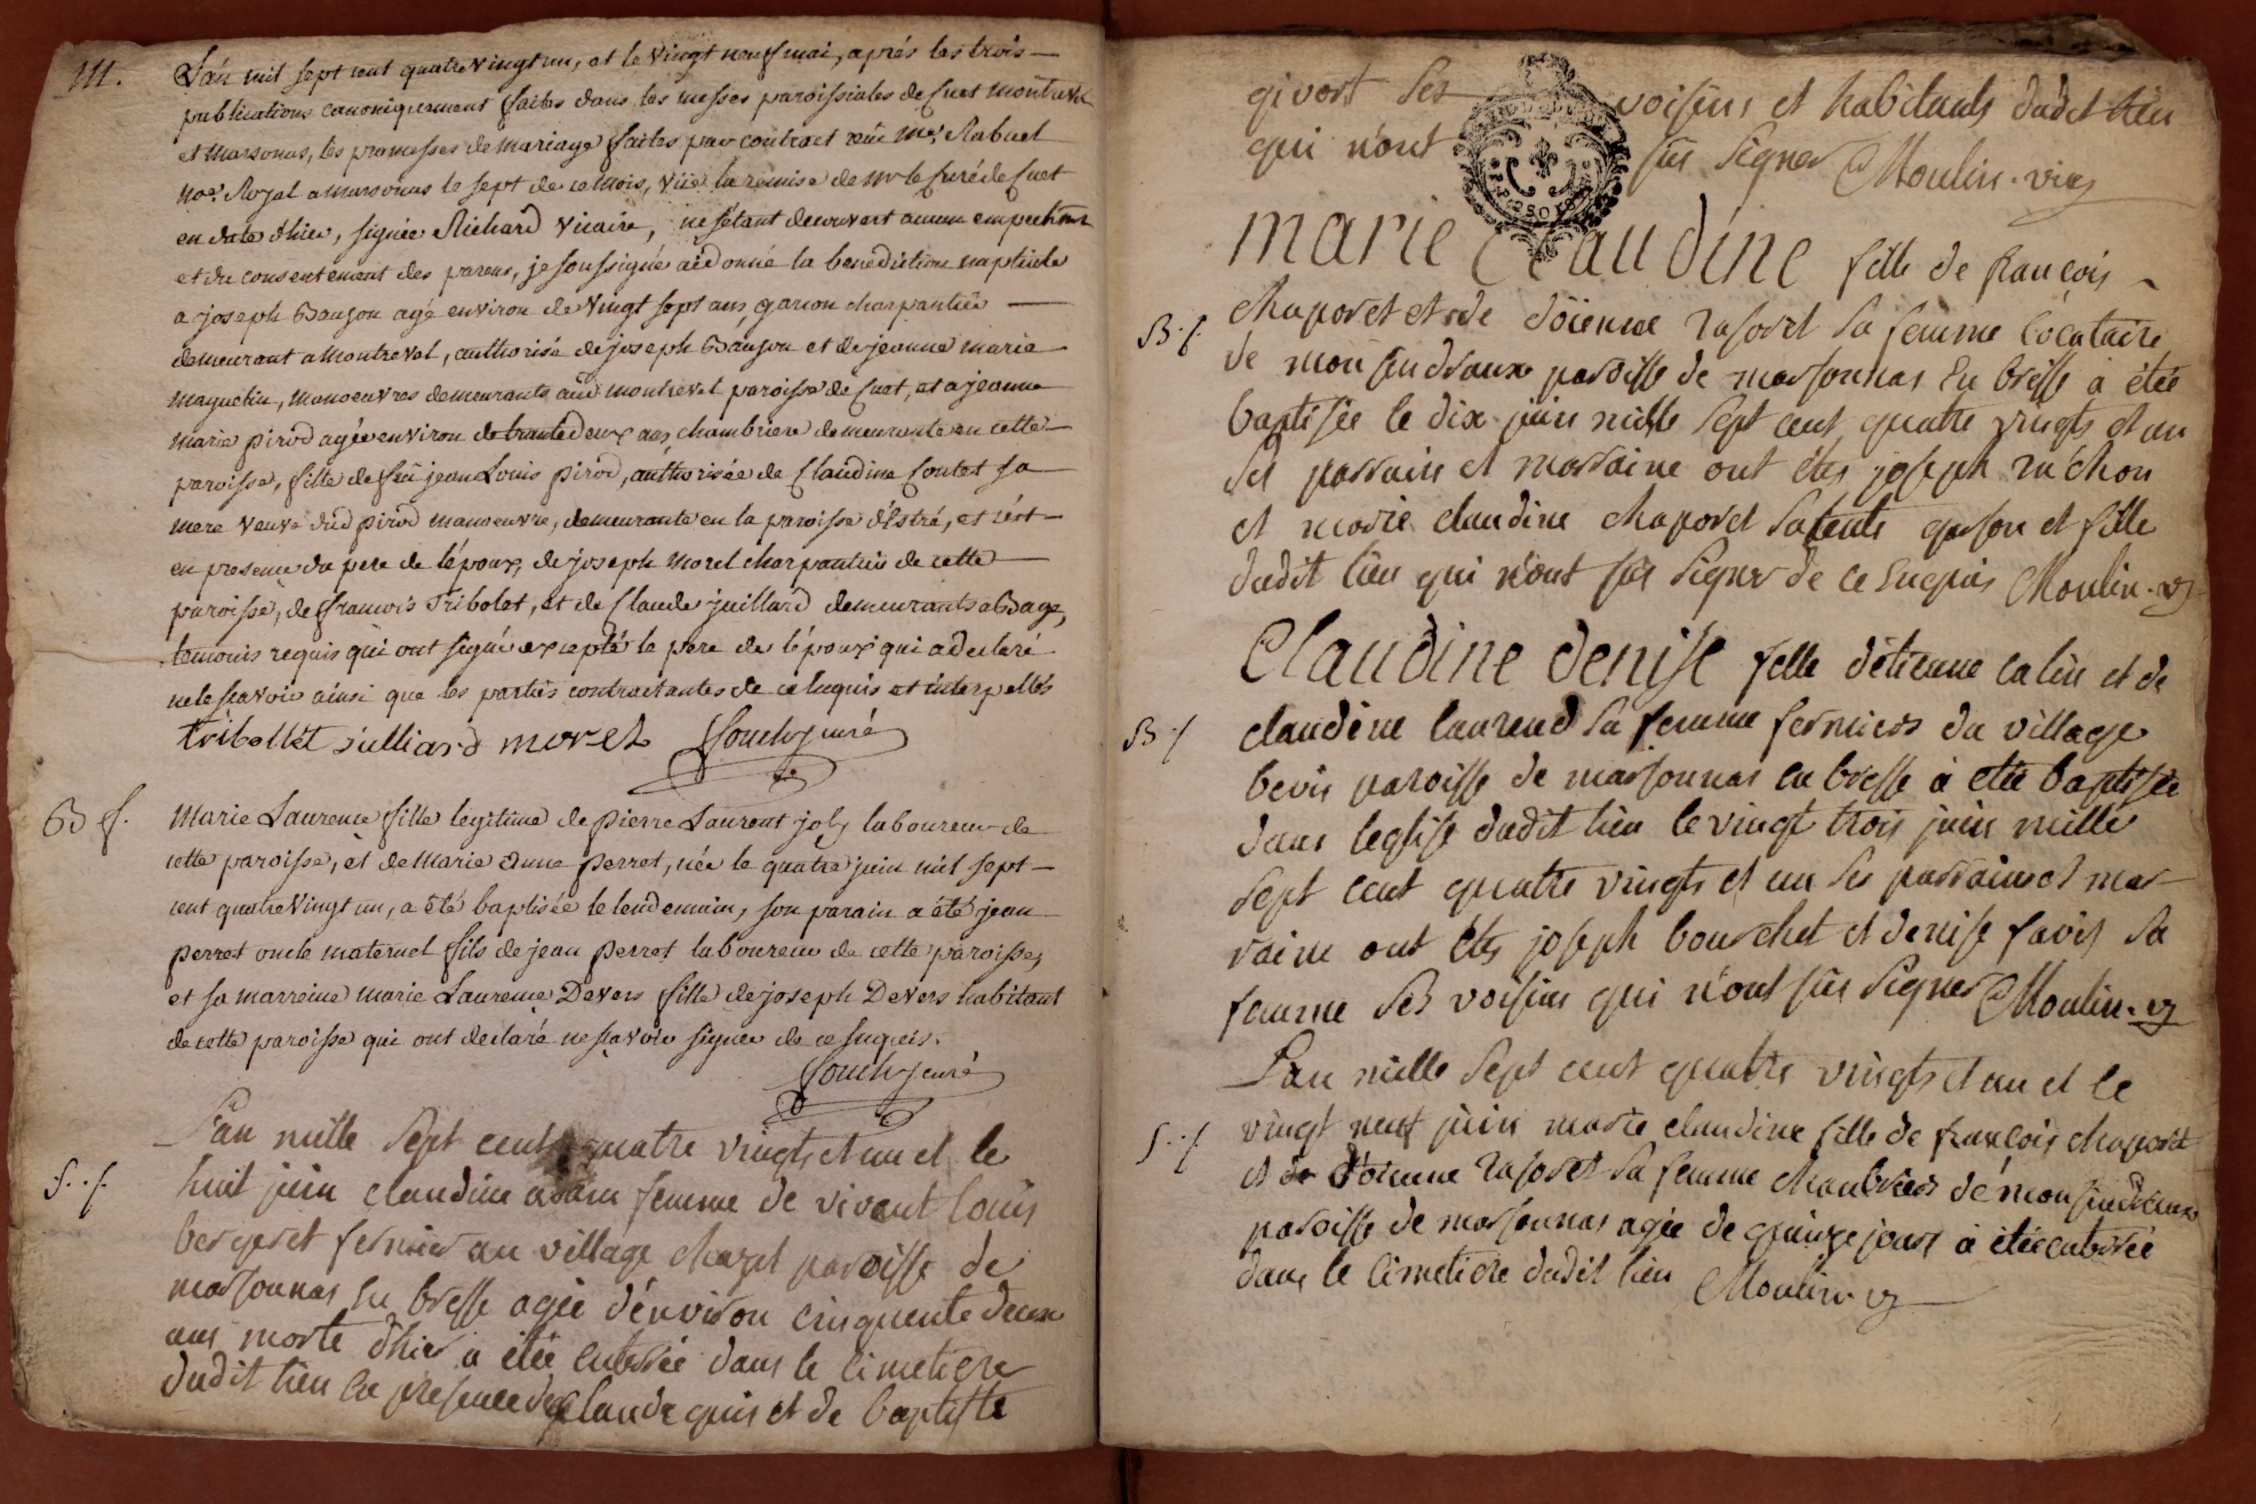 M.
L'an mil sept cent quatre vingt un, et le vingt neuf mai, aprés les trois
publications canoniquement faites dans les messes paroissiales de Cuet montrevel
et marsonas, les promesses de mariage faites par contract reçu me Rabuel
nore Royal a marsonas le sept de ce mois, vüe la remise de mr le Curé de Cuet
en date d'hier, signée Richard vicaire, ne s'étant decouvert aucun empechement
et du consentement des parens, je soussigné ai donné la benediction nuptiale
a joseph Baujon agé environ de vingt sept ans, garçon charpantier
demeurant a Montrevel, authorisé de joseph Baujon et de jeanne marie
maquetin, manoeuvres demeurants aud montrevel paroisse de Cuet, et a jeanne
marie pirod agée environ de trante deux ans, chambriere demeurante en cette
paroisse, fille de feu jean Louis pirod, authorisée de Claudine Contet sa
mere veuve dud pirod manoeuvre, demeurante en la paroisse d'Estré, et c'est
en presence du pere de l'époux, de joseph morel charpantier de cette
paroisse, de francois Tribolet, et de Claude juillard demeurants a Bage,
temoins requis qui ont signé excepté le pere de l'époux qui a declaré
ne le scavoir ainsi que les parties contractantes de ce enquis et interpellés
tribollet juilliard morel Couch curé
B f.
Marie Laurence fille legitime de pierre Laurent joly laboureur de
cette paroisse, et de Marie Anne perret, née le quatre juin mil sept
cent quatre vingt un, a été baptisée le lendemain, son parain a été jean
perret oncle maternel fils de jean perret laboureur de cette paroisse,
et sa marreine marie Laurence Devers fille de joseph Devers habitant
de cette paroisse qui ont declaré ne scavoir signer de ce enquis.
Couch curé
L'an mille sept cent quatre vingts et un et le
S..f.
huit juin claudine adam femme de vivant louis
bergeret fermier au village chazel paroisse de
marsonnas en bresse agée d'environ cinquante deux
ans morte d'hier a étée enterrée dans le cimetiere
dudit lieu en presence de claude guis et de baptiste
givort ses voisins et habitants dudit lieu
qui n'ont sus signer Moulin. vic
marie claudine fille de françois
B.f.
chaporet et de doienne rasoret sa femme locataire
de monsindraux paroisse de marsonnas en bresse a étée
baptisée le dix juin mille sept cent quatre vingts et un
ses parrain et marraine ont étés joseph
et marie claudine chaporet sa tente garson et fille
dudit lieu qui n'ont sus signer de ce enquis Moulin. v
Claudine denise fille d'etienne catin et de
B.f
claudine laurend sa femme fermiers du village
bevis paroisse de marsonnas en bresse a etée baptisée
dans leglise dudit lieu le vingt trois juin mille
sept cent quatre vingts et un ses parrain et mar
raine ont étés joseph bourchet et denise favis sa
femme ses voisins qui n'ont sus signer Moulin. v
L'an mille sept cent quatre vingts et un et le
S..f
vingt neuf juin marie claudine fille de françois chaporet
et de doienne rasoret sa femme de monsindraux
paroisse de marsonnas agée de quinze jours a étée enterrée
dans le cimetiere dudit lieu Moulin v